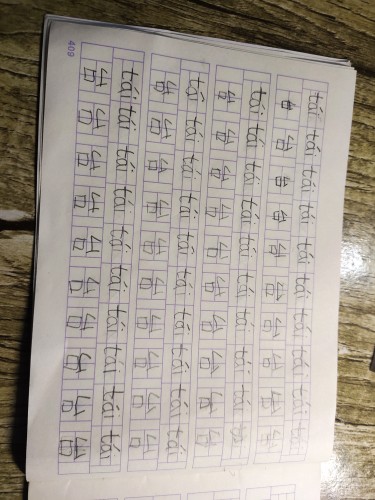 tái tái tái tái tái tái tái tái tái tái
台 台 台 台 台 台 台 台 台 台
tái tái tái tái tái tái tái tái tái tái
台 台 台 台 台 台 台 台 台 台
tái tái tái tái tái tái tái tái tái tái
台 台 台 台 台 台 台 台 台 台
tái tái tái tái tái tái tái tái tái tái
台 台 台 台 台 台 台 台 台 台
409